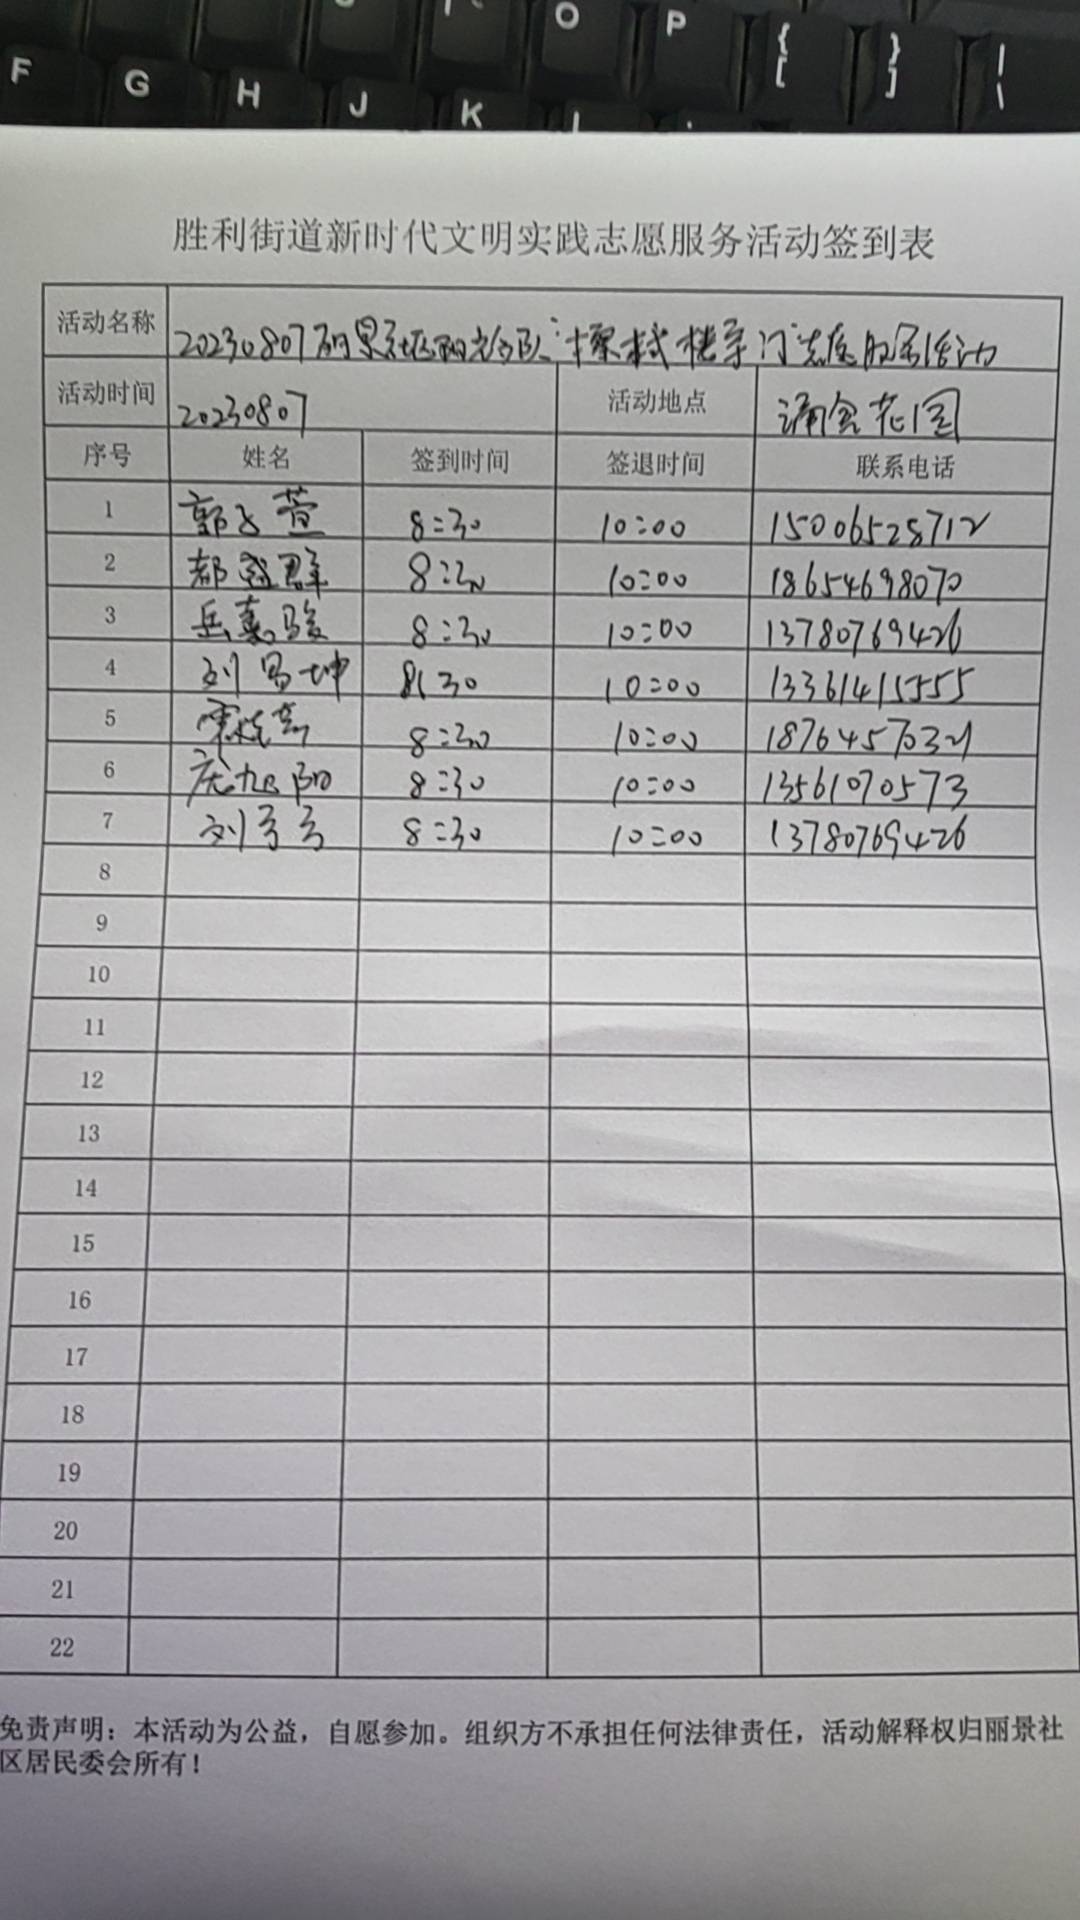 O P { [ } ] | \
F G H J K L
胜利街道新时代文明实践志愿服务活动签到表
活动名称 20230807丽景社区阳光分队“擦拭楼宇门”志愿服务活动
活动时间 20230807 活动地点 涌金花园
序号 姓名 签到时间 签退时间 联系电话
1 郭子萱 8:30 10:00 15006528712
2 8:30 10:00 18654698070
3 岳嘉骏 8:30 10:00 13780769426
4 刘昌坤 8:30 10:00 13361415555
5 8:30 10:00
6 庞旭阳 8:30 10:00 13561070573
7 刘 8:30 10:00 13780769426
8
9
10
11
12
13
14
15
16
17
18
19
20
21
22
免责声明：本活动为公益，自愿参加。组织方不承担任何法律责任，活动解释权归丽景社
区居民委会所有！